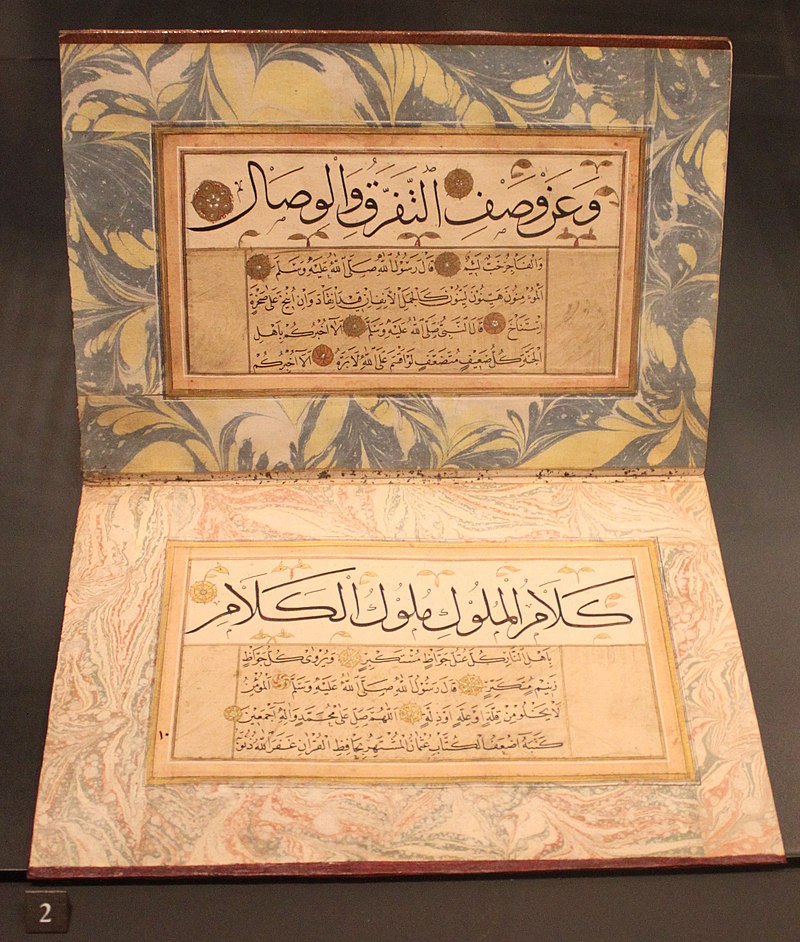 وَعَنْ وَصْفِ التَّفَرُّقِ وَالْوِصَالِ
قَالَ رَسُولُ اللّٰهِ صَلَّى اللّٰهُ عَلَيْهِ وَسَلَّمَ
اَلْمُؤْمِنُونَ هَيِّنُونَ لَيِّنُونَ كَالْجَمَلِ الْاَنِفِ اِنْ قِيدَ انْقَادَ وَاِنْ اُنِيخَ عَلَى صَخْرَةٍ
اِسْتَنَاخَ قَالَ النَّبِيُّ صَلَّى اللّٰهُ عَلَيْهِ وَسَلَّمَ اَلَا اُخْبِرُكُمْ بِاَهْلِ
الْجَنَّةِ كُلُّ ضَعِيفٍ مُتَضَعِّفٍ لَوْ اَقْسَمَ عَلَى اللّٰهِ لَاَبَرَّهُ اَلَا اُخْبِرُكُمْ
كَلَامُ الْمُلُوكِ مُلُوكُ الْكَلَامِ
بِاَهْلِ النَّارِ كُلُّ عُتُلٍّ جَوَّاظٍ مُسْتَكْبِرٍ وَيُرْوٰى كُلُّ جَوَّاظٍ
زَنِيمٍ مُتَكَبِّرٍ قَالَ رَسُولُ اللّٰهِ صَلَّى اللّٰهُ عَلَيْهِ وَسَلَّمَ اَلْمُؤْمِنُ
لَا يَخْلُو مِنْ قِلَّةٍ اَوْ عِلَّةٍ اَوْ ذِلَّةٍ اَللّٰهُمَّ صَلِّ عَلٰى مُحَمَّدٍ وَاٰلِهِ اَجْمَعِينَ
كَتَبَهُ اَضْعَفُ الْكُتَّابِ عُثْمَانُ الْمُشْتَهِرُ بِحَافِظِ الْقُرْاٰنِ غَفَرَ اللّٰهُ ذُنُوبَهُ
١٠
2